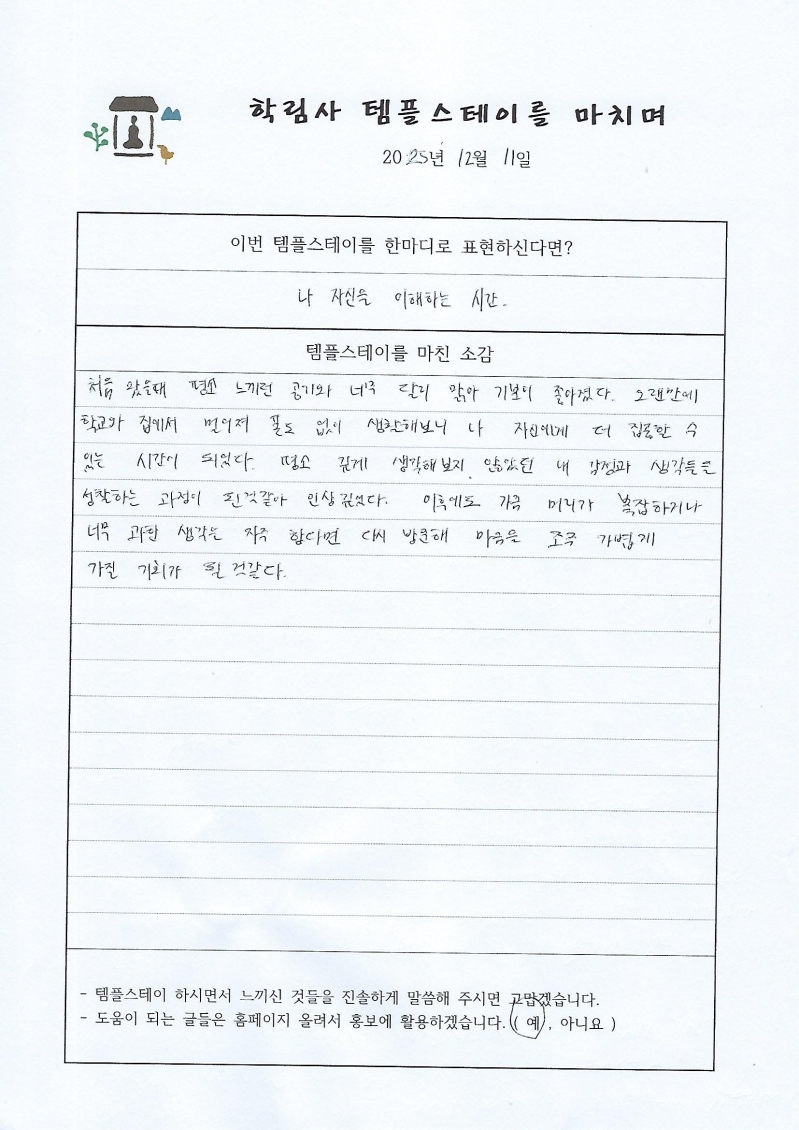 학림사 템플스테이를 마치며
2025년 12월 11일
이번 템플스테이를 한마디로 표현하신다면?
나 자신을 이해하는 시간.
템플스테이를 마친 소감
처음 왔을때 평소 느끼던 공기와 너무 달리 맑아 기분이 좋아졌다. 오랜만에
학교와 집에서 멀어져 폰도 없이 생활해보니 나 자신에게 더 집중할 수
있는 시간이 되었다. 평소 깊게 생각해보지 않았던 내 감정과 생각들을
성찰하는 과정이 된것같아 인상깊었다. 이후에도 가끔 머리가 복잡하거나
너무 과한 생각을 자주 한다면 다시 방문해 마음을 조금 가볍게
가질 기회가 될 것같다.
- 템플스테이 하시면서 느끼신 것들을 진솔하게 말씀해 주시면 고맙겠습니다.
- 도움이 되는 글들은 홈페이지 올려서 홍보에 활용하겠습니다. ( 예 , 아니요 )